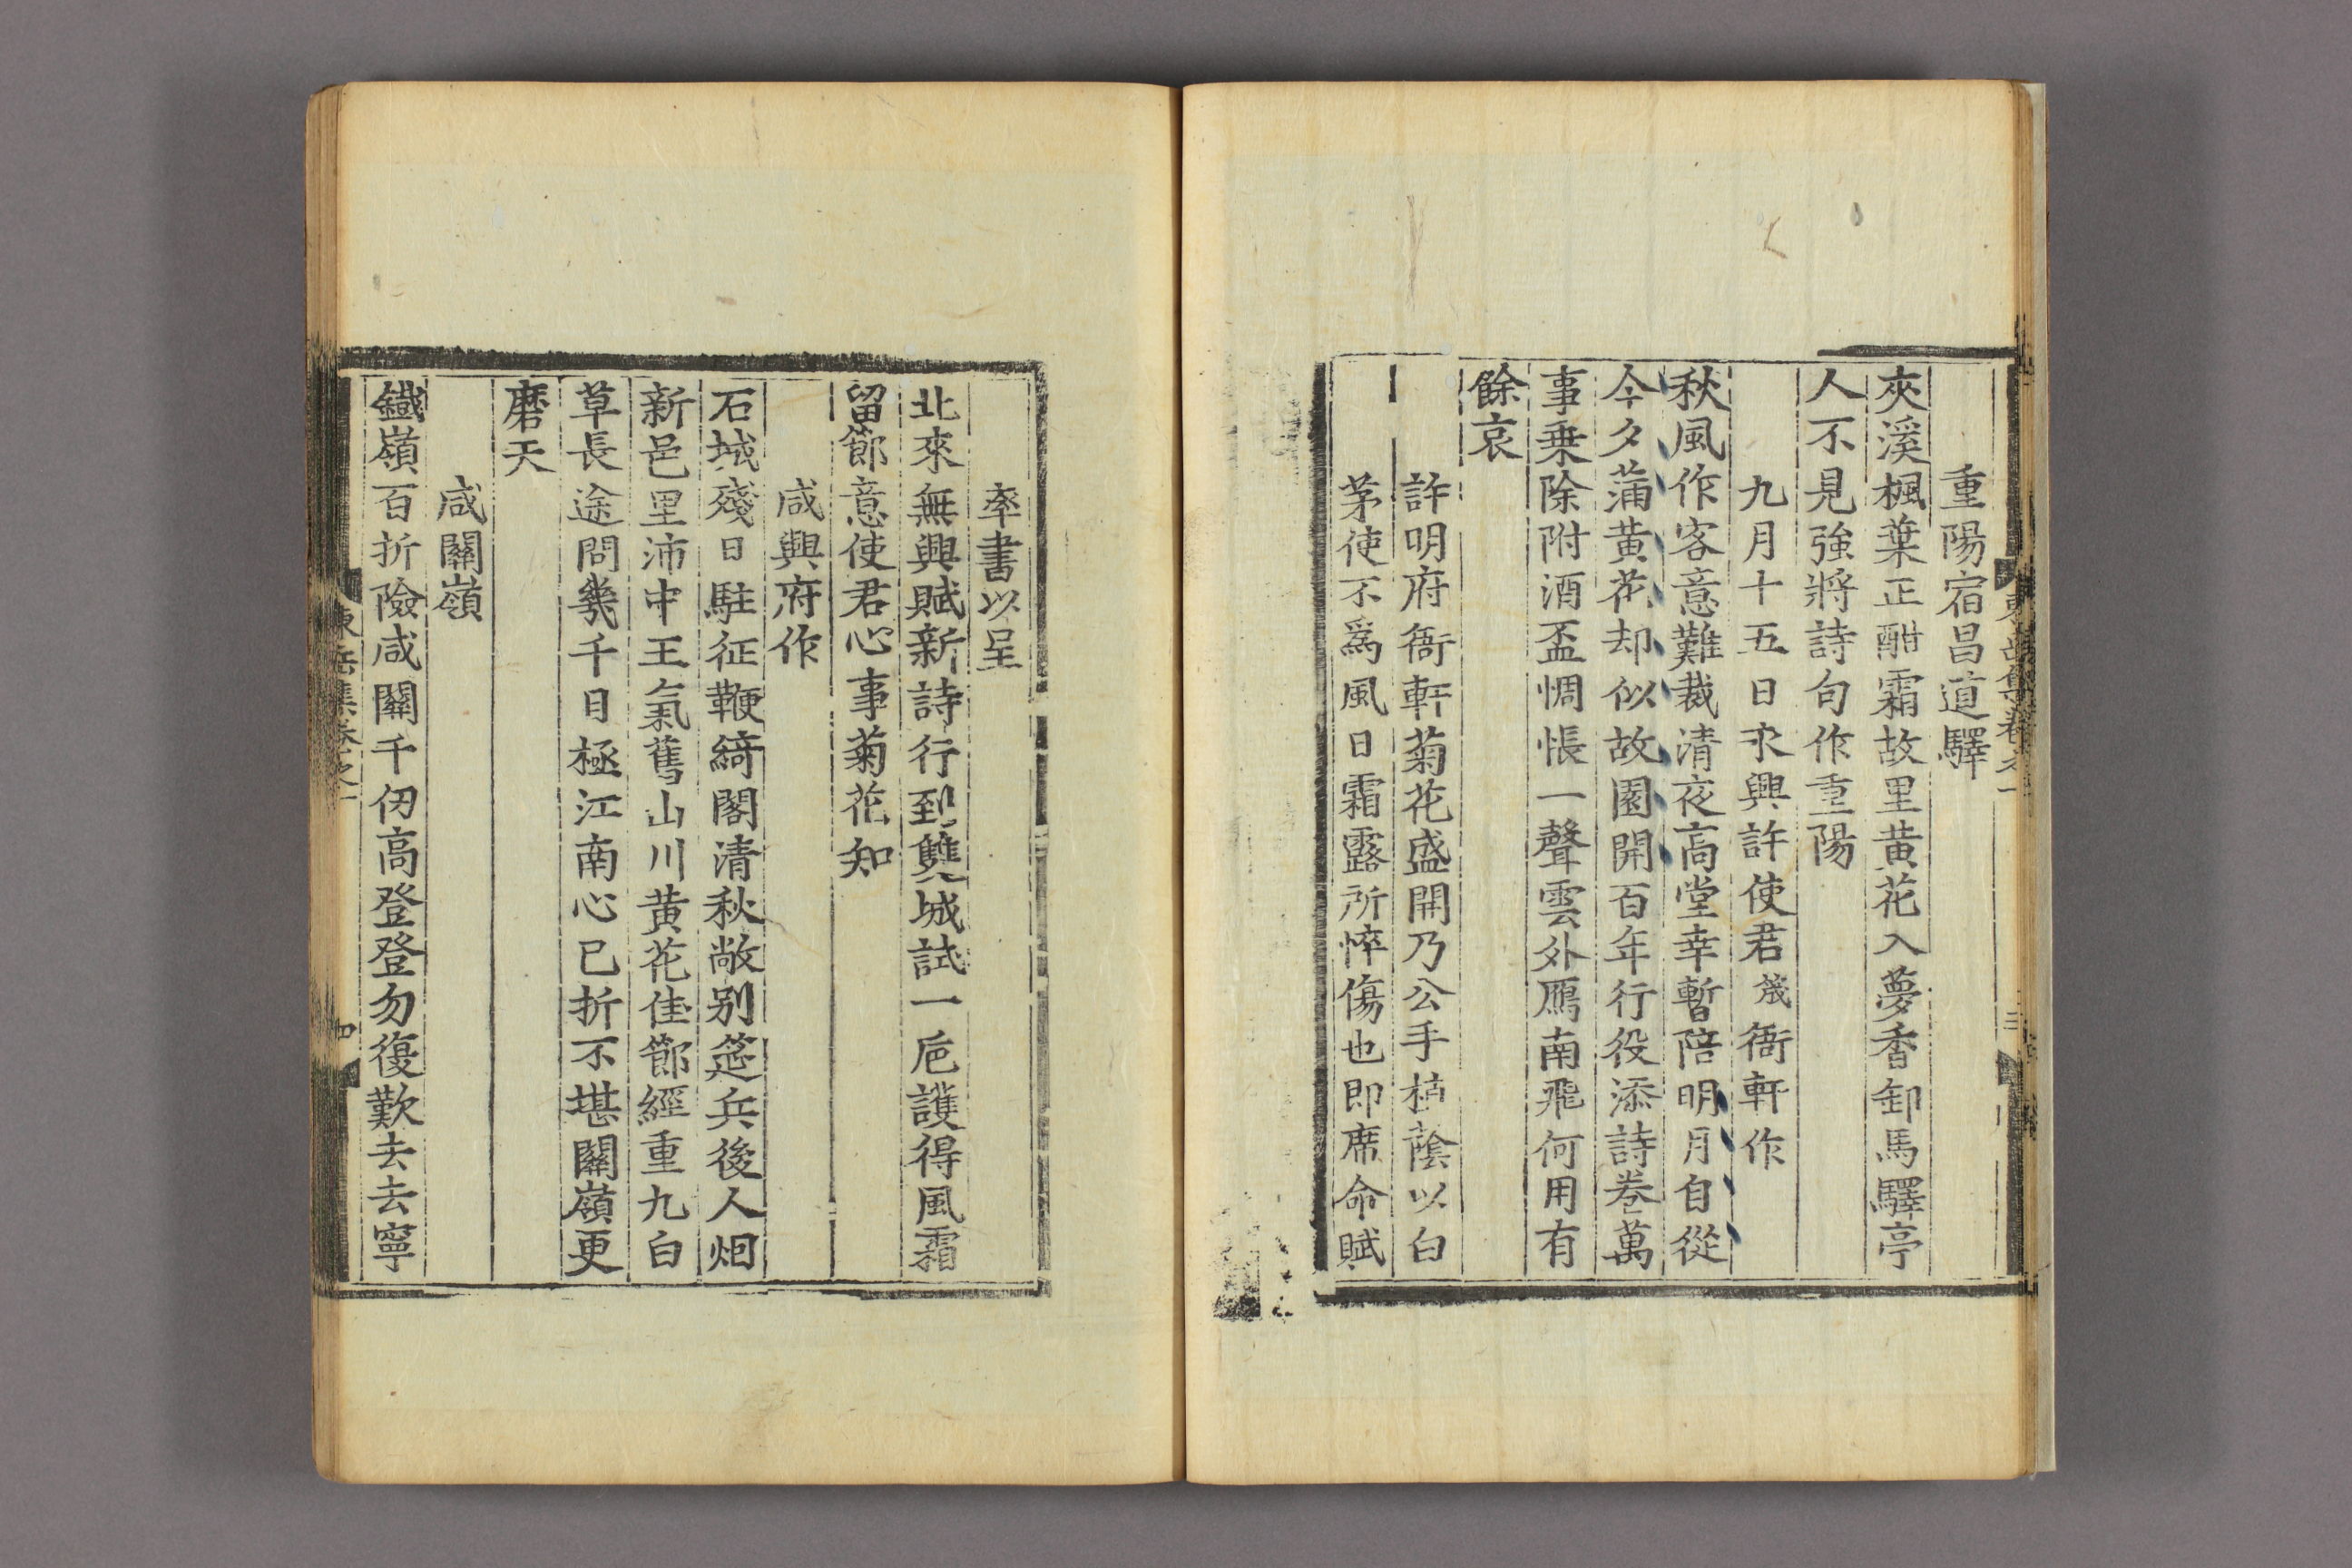 重陽宿昌道驛
夾溪楓葉正酣霜故里黄花入夢香卸馬驛亭
人不見強將詩句作重陽
九月十五日永興許使君箴衙軒作
秋風作客意難裁清夜高堂幸暫陪明月自從
今夕蒲黄花却似故園開百年行役添詩卷萬
事乗除附酒盃惆悵一聲雲外鴈南飛何用有
餘哀
許明府衙軒菊花盛開乃公手植蔭以白
茅使不爲風日霜露所悴傷也即席命賦
率書以呈
北來無興賦新詩行到雙城試一巵護得風霜
留節意使君心事菊花知
咸興府作
石城殘日駐征鞭綺閣清秋敞别筵兵後人烟
新邑里沛中王氣舊山川黄花佳節經重九白
草長途問幾千日極江南心已折不堪關嶺更
磨天
咸關嶺
鐵嶺百折險咸關千仞高登登勿復歎去去寧
東岳集卷之一
四